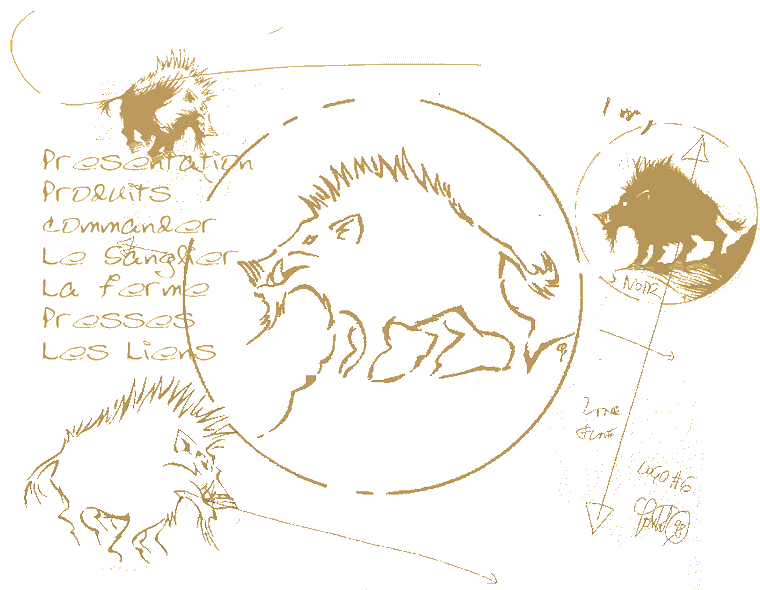 Presentation
Produits
Commander
Le Sanglier
La ferme
Presses
Les Liens
Logo #6